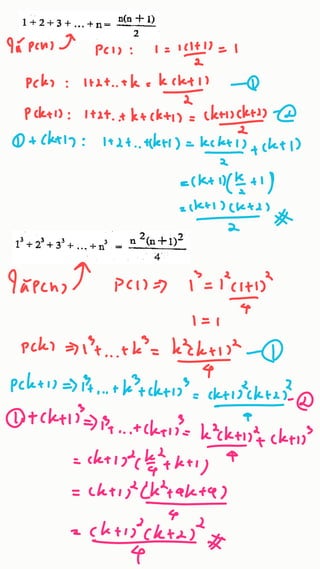 1 + 2 + 3 + ... + n = n(n + 1)/2
ให้ P(n) P(1) : 1 = 1(1+1)/2 = 1
P(k) : 1+2+..+k = k(k+1)/2 —①
P(k+1) : 1+2+..+k+(k+1) = (k+1)(k+2)/2 —②
①+(k+1) : 1+2+..+(k+1) = k(k+1)/2 + (k+1)
= (k+1)(k/2 + 1)
= (k+1)(k+2)/2 #
1³ + 2³ + 3³ + ... + n³ = n²(n + 1)²/4
ให้ P(n) P(1) ⇒ 1³ = 1²(1+1)²/4
1 = 1
P(k) ⇒ 1³+...+k³ = k²(k+1)²/4 —①
P(k+1) ⇒ 1³+...+k³+(k+1)³ = (k+1)²(k+2)²/4 —②
①+(k+1)³ ⇒ 1³+...+(k+1)³ = k²(k+1)²/4 + (k+1)³
= (k+1)²(k²/4 + k+1)
= (k+1)²(k²+4k+4)/4
= (k+1)²(k+2)²/4 #